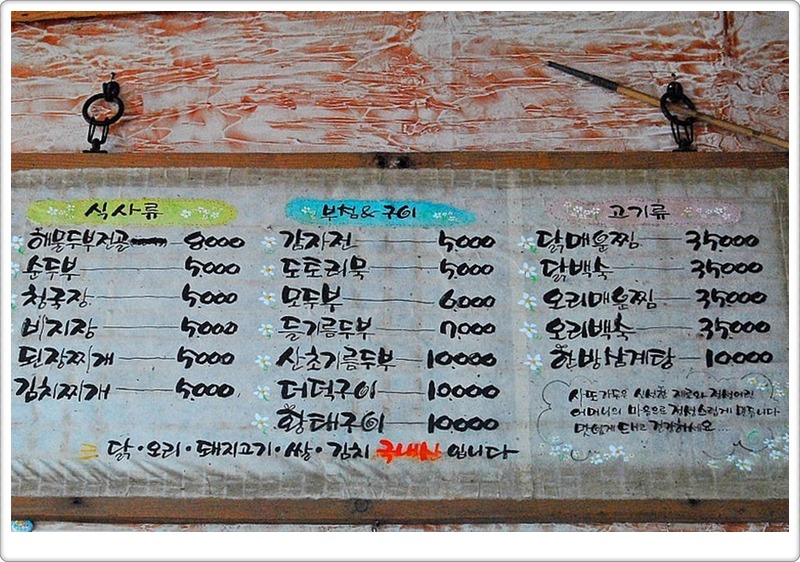 식사류
해물두부전골 8,000
순두부 5,000
청국장 5,000
비지장 5,000
된장찌개 5,000
김치찌개 5,000
부침&구이
감자전 5,000
도토리묵 5,000
모두부 6,000
들기름두부 7,000
산초기름두부 10,000
더덕구이 10,000
황태구이 10,000
고기류
닭매운찜 35,000
닭백숙 35,000
오리매운찜 35,000
오리백숙 35,000
한방삼계탕 10,000
사또가든은 신선한 재료와 정성어린
어머니의 마음으로 정성스럽게 모십니다
맛있게 드시고 건강하세요...
닭·오리·돼지고기·쌀·김치 국내산 입니다